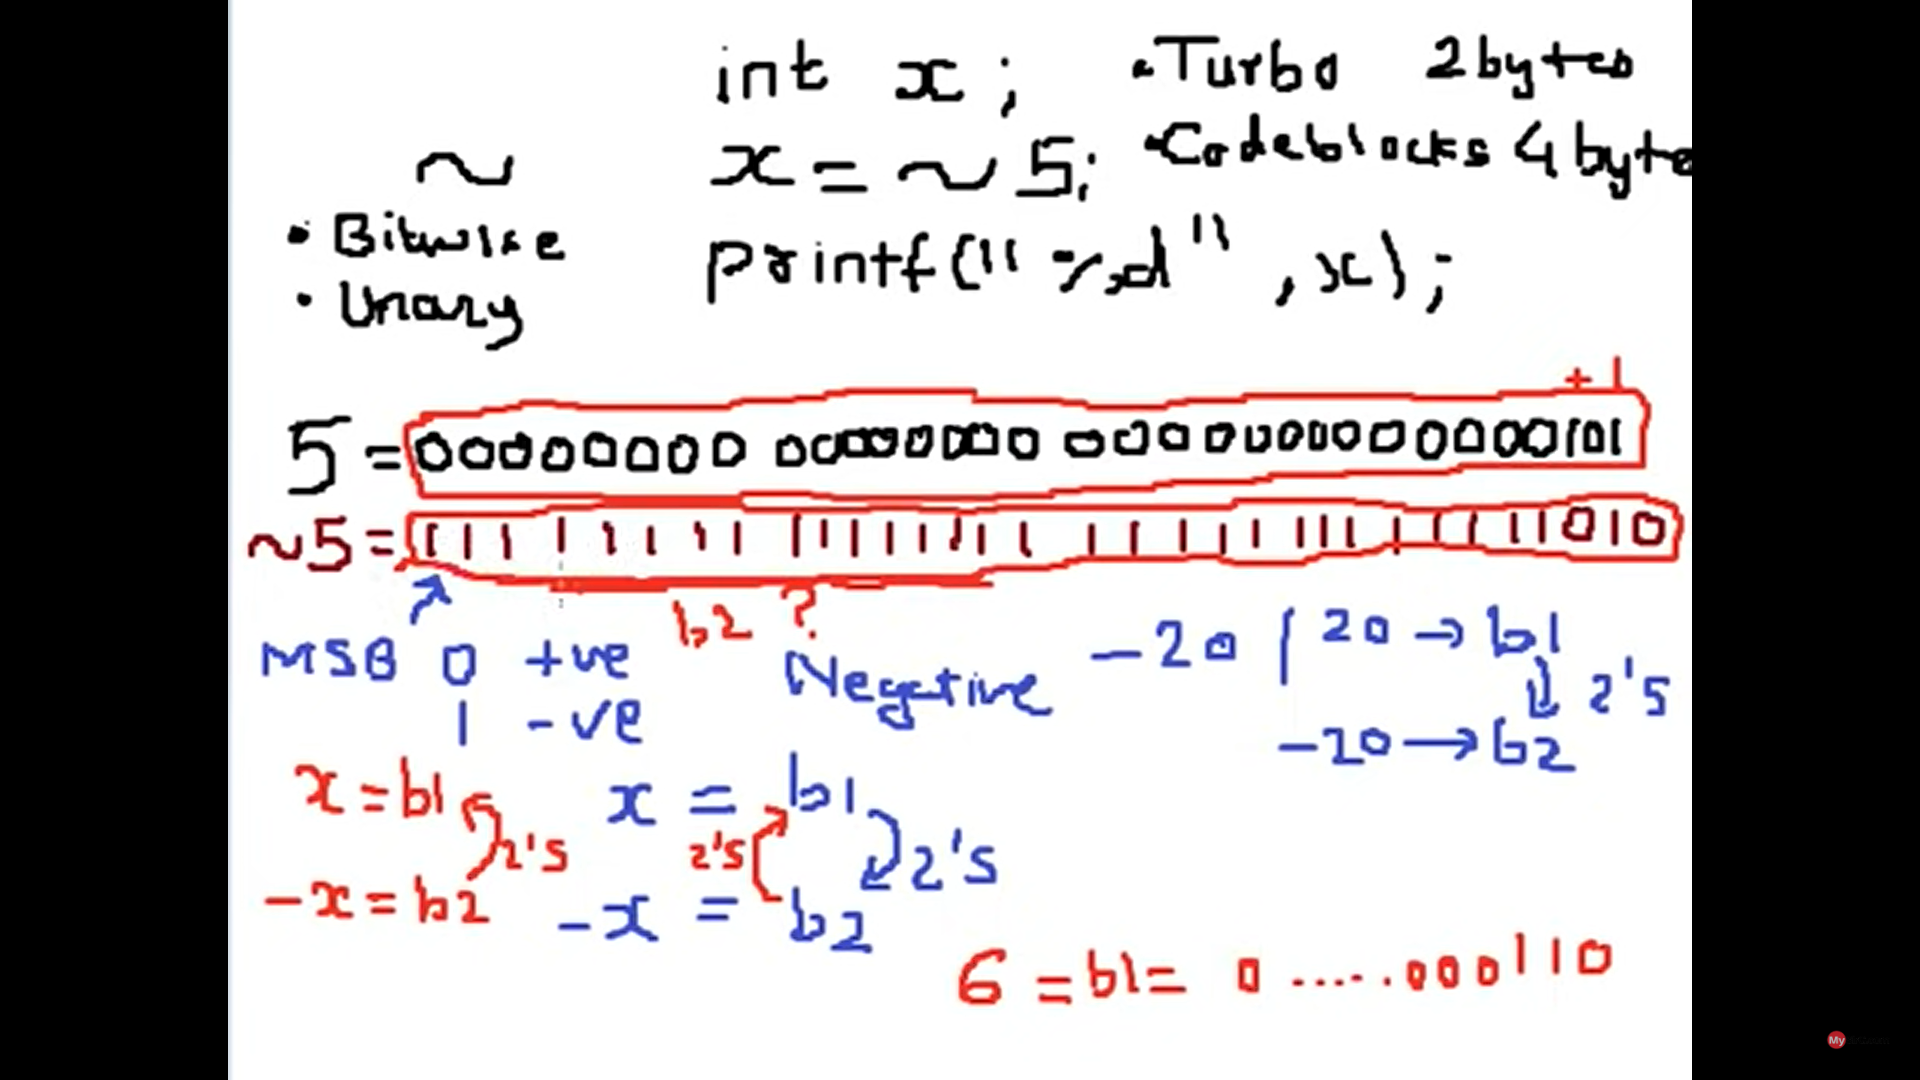 int x;
• Turbo 2bytes
~ x = ~5;
• Codeblocks 4 byte
• Bitwise
• Unary
printf("%d", x);
+1
5 = 00000000 00000000 00000000 00000101
~5 = 11111111 11111111 11111111 11111010
b2 ?
MSB 0 +ve
1 -ve
Negative
-20
20 → b1
2's
-20 → b2
x = b1
2's
-x = b2
x = b1
2's 2's
-x = b2
6 = b1 = 0.....000110
My